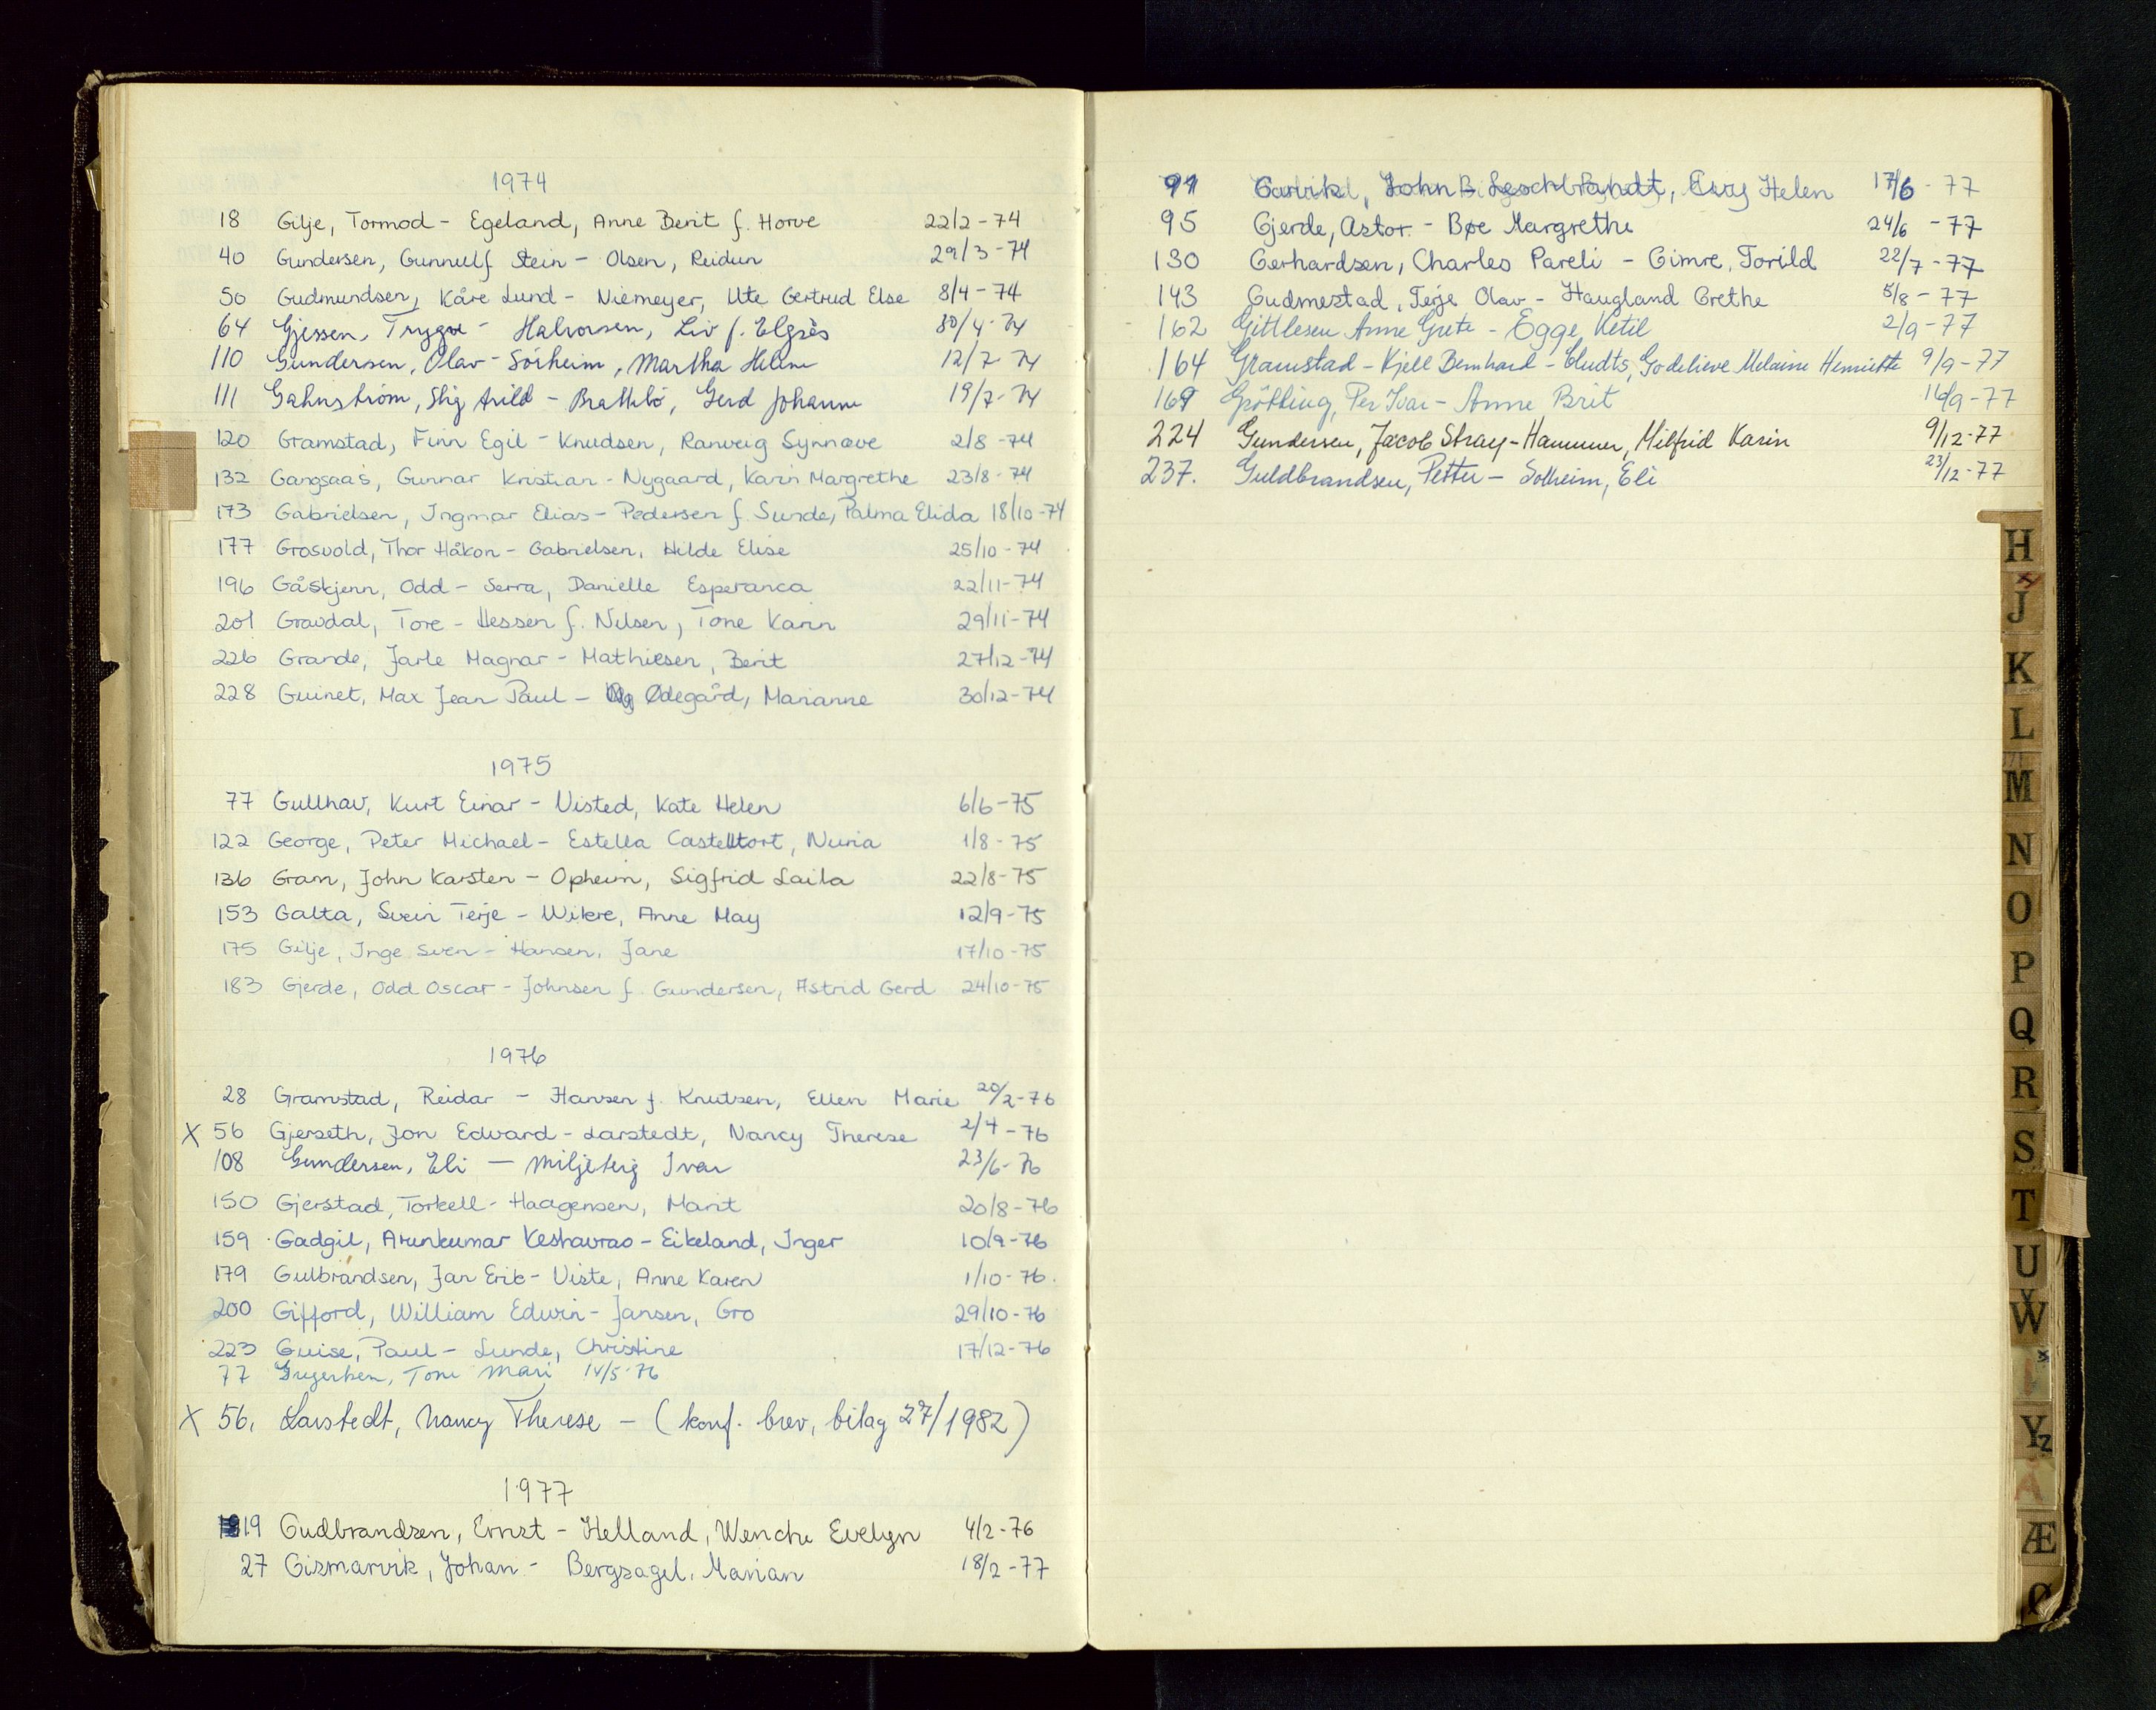 1974
18 Gilje, Tormod - Egeland, Anne Berit f. Horve 22/2-74
40 Gundersen, Gunnulf Stein - Olsen, Reidun 29/3-74
50 Gudmundsen, Kåre Lund - Niemeyer, Ute Gertrud Else 8/4-74
64 Gjessen, Trygve - Halvorsen, Liv f. Elgsås 30/4-74
110 Gundersen, Olav - Sörheim, Martha Helene 12/7-74
111 Gahnström, Stig Arild - Brattebö, Gerd Johanne 19/7-74
120 Gramstad, Finn Egil - Knudsen, Ranveig Synnøve 2/8-74
132 Gangsaas, Gunnar Kristian - Nygaard, Karin Margrethe 23/8-74
173 Gabrielsen, Ingmar Elias - Pedersen f. Sunde, Palma Elida 18/10-74
177 Grosvold, Thor Håkon - Gabrielsen, Hilde Elise 25/10-74
196 Gåskjenn, Odd - Serra, Danielle Esperanca 22/11-74
201 Gravdal, Tore - Hessen f. Nilsen, Tone Karin 29/11-74
226 Grande, Jarle Magnar - Mathiesen, Berit 27/12-74
228 Guinet, Max Jean Paul - Ødegård, Marianne 30/12-74
1975
77 Gullhav, Kurt Einar - Visted, Kate Helen 6/6-75
122 George, Peter Michael - Estella Castelltort, Nuria 1/8-75
136 Gram, John Karsten - Opheim, Sigfrid Laila 22/8-75
153 Galta, Svein Terje - Wikre, Anne May 12/9-75
175 Gilje, Inge Sven - Hansen, Jane 17/10-75
183 Gjerde, Odd Oscar - Johnsen f. Gundersen, Astrid Gerd 24/10-75
1976
28 Gramstad, Reidar - Hansen f. Knutsen, Ellen Marie 20/2-76
X 56 Gjerseth, Jon Edvard - Larstedt, Nancy Therese 2/4-76
108 Gundersen, Eli - Miljeteig Ivar 23/6-76
150 Gjerstad, Torkell - Haagensen, Marit 20/8-76
159 Gadgil, Arunkumar Keshavrao - Eikeland, Inger 10/9-76
179 Gulbrandsen, Jan Erik - Viste, Anne Karen 1/10-76.
200 Gifford, William Edwin - Jansen, Gro 29/10-76
223 Guise, Paul - Lunde, Christine 17/12-76
77 Toni Mari 14/5-76
X 56. Larstedt, Nancy Therese - (konf. brev, bilag 27/1982)
1977
19 Gudbrandsen, Ernst - Helland, Wenche Evelyn 4/2-76
27 Gismarvik, Johan - Bergsagel, Marian 18/2-77
91 John Helen 17/6-77
95 Gjerde, Astor - Bøe Margrethe 24/6-77
130 Gerhardsen, Charles Pareli - Gimre, Torild 22/7-77
143 Gudmestad, Terje Olav - Haugland Grethe 5/8-77
162 Gittlesen Anne Grete - Egge, Ketil 2/9-77
164 Gramstad - Kjell Bernhard - Cludts, Godelieve Melaine Henriette 9/9-77
169 Götting, Per Ivar - Anne Brit 16/9-77
224 Gundersen, Jacob Stray - Hammer, Milfrid Karin 9/12-77
237. Guldbrandsen, Petter - Solheim, Eli 23/12-77
H
J
K
L
M
N
O
P
Q
R
S
T
U
V
W
Y
Z
Å
Æ
Ø